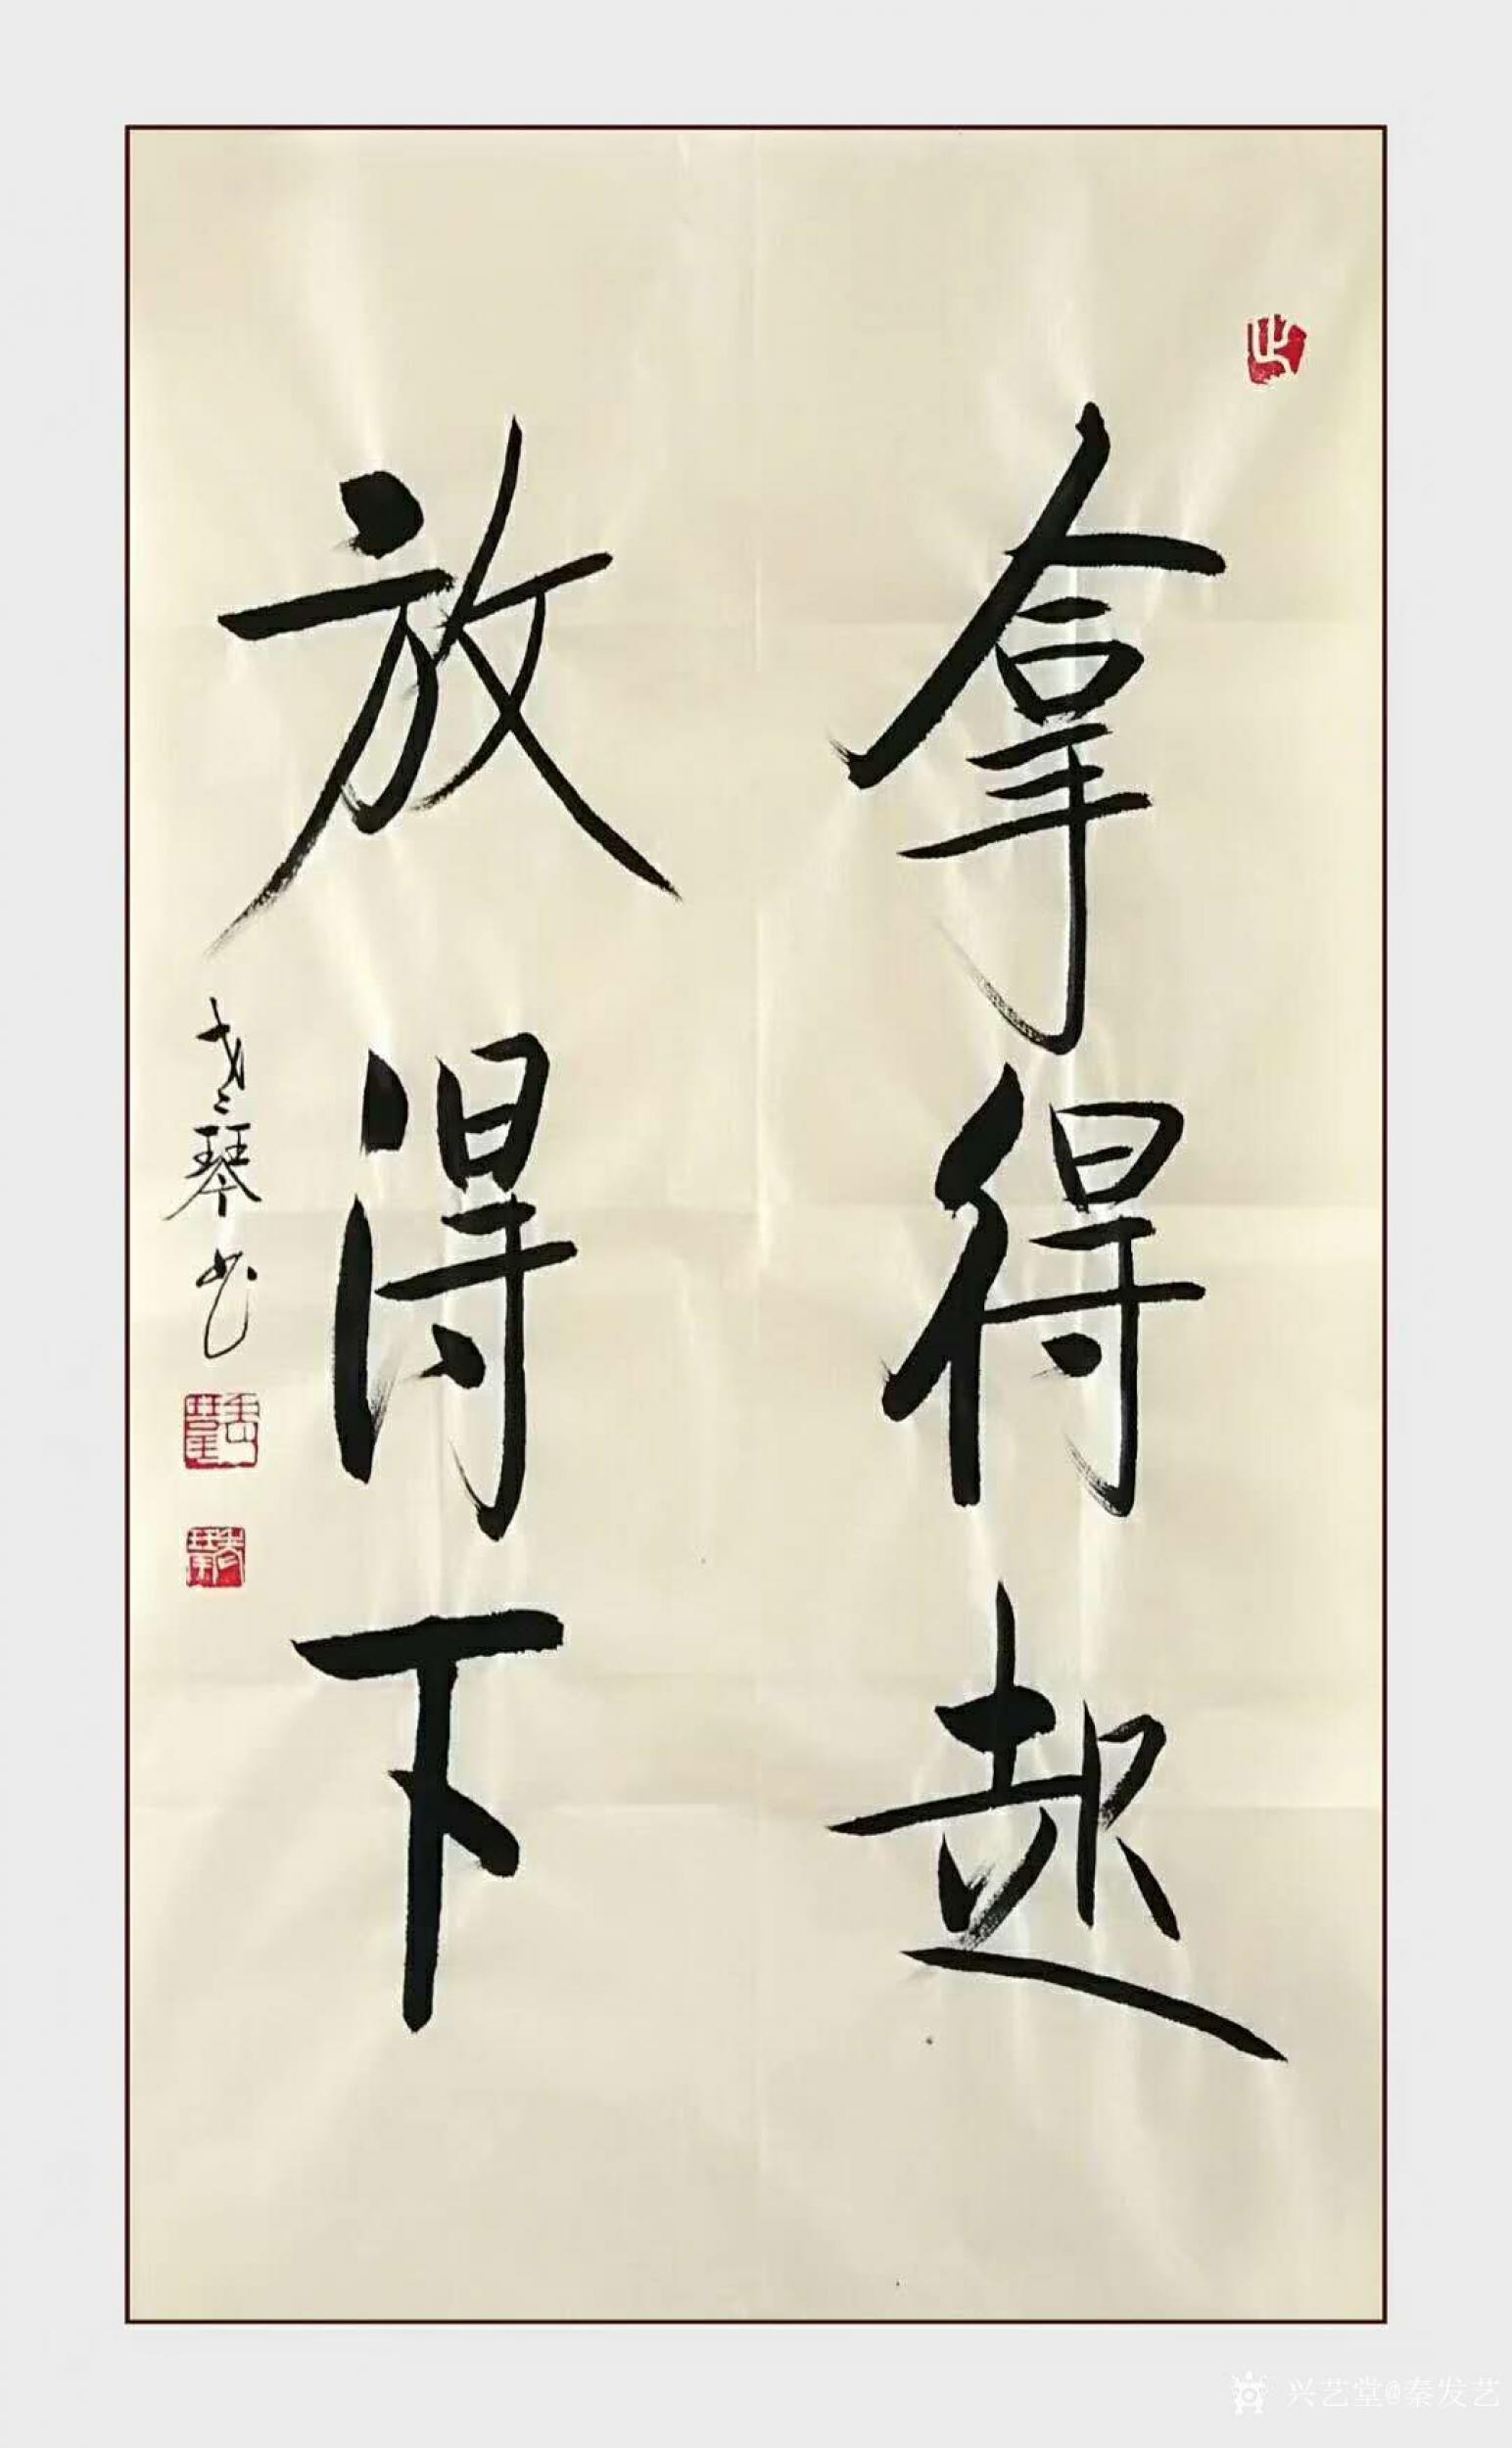 拿得起
放得下
琴书
兴艺堂@秦发艺